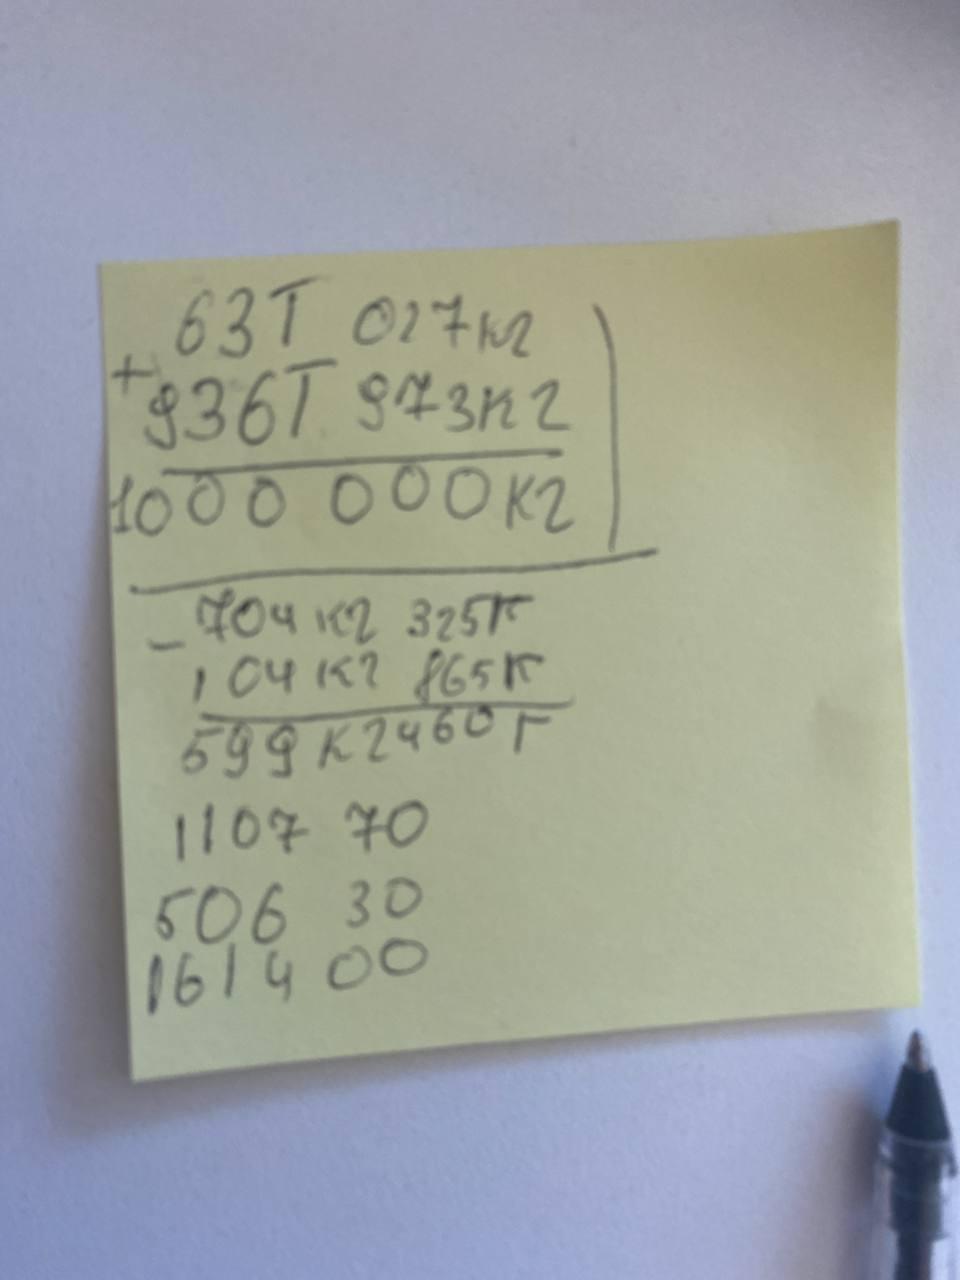 63Т 027кг
+
936Т 973кг
1000 000кг
- 704 кг 325г
104 кг 865г
599 кг 460 г
1107 70
506 30
1614 00